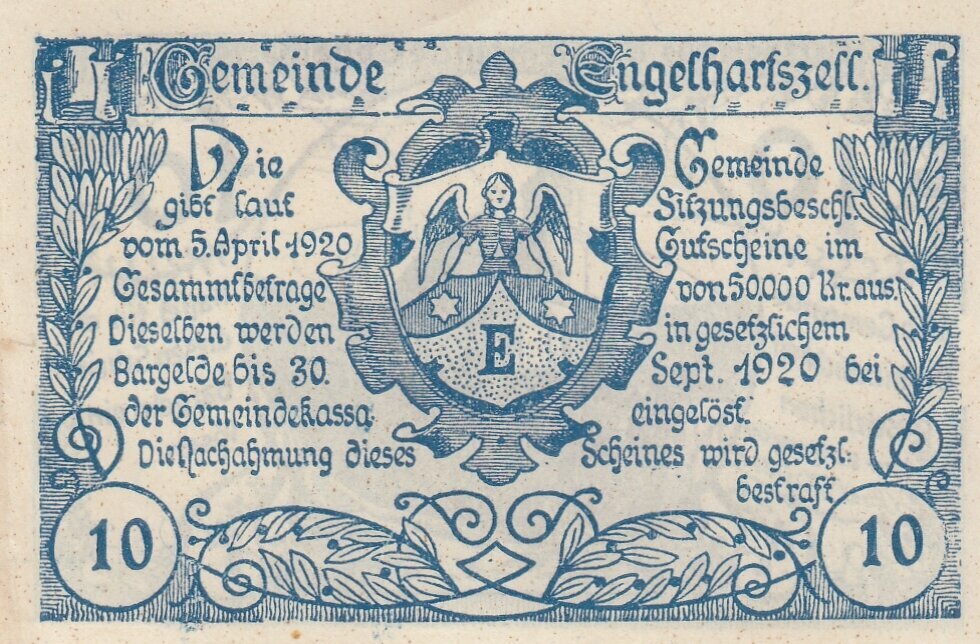 Gemeinde Engelhartszell.
Die Gemeinde
gibt laut Sitzungsbeschl.
vom 5. April 1920 Gutscheine im
Gesammtbetrage von 50.000 Kr. aus.
Dieselben werden in gesetzlichem
Bargelde bis 30. Sept. 1920 bei
der Gemeindekassa eingelöst.
Die Nachahmung dieses Scheines wird gesetzl:
bestraft
E
10 10